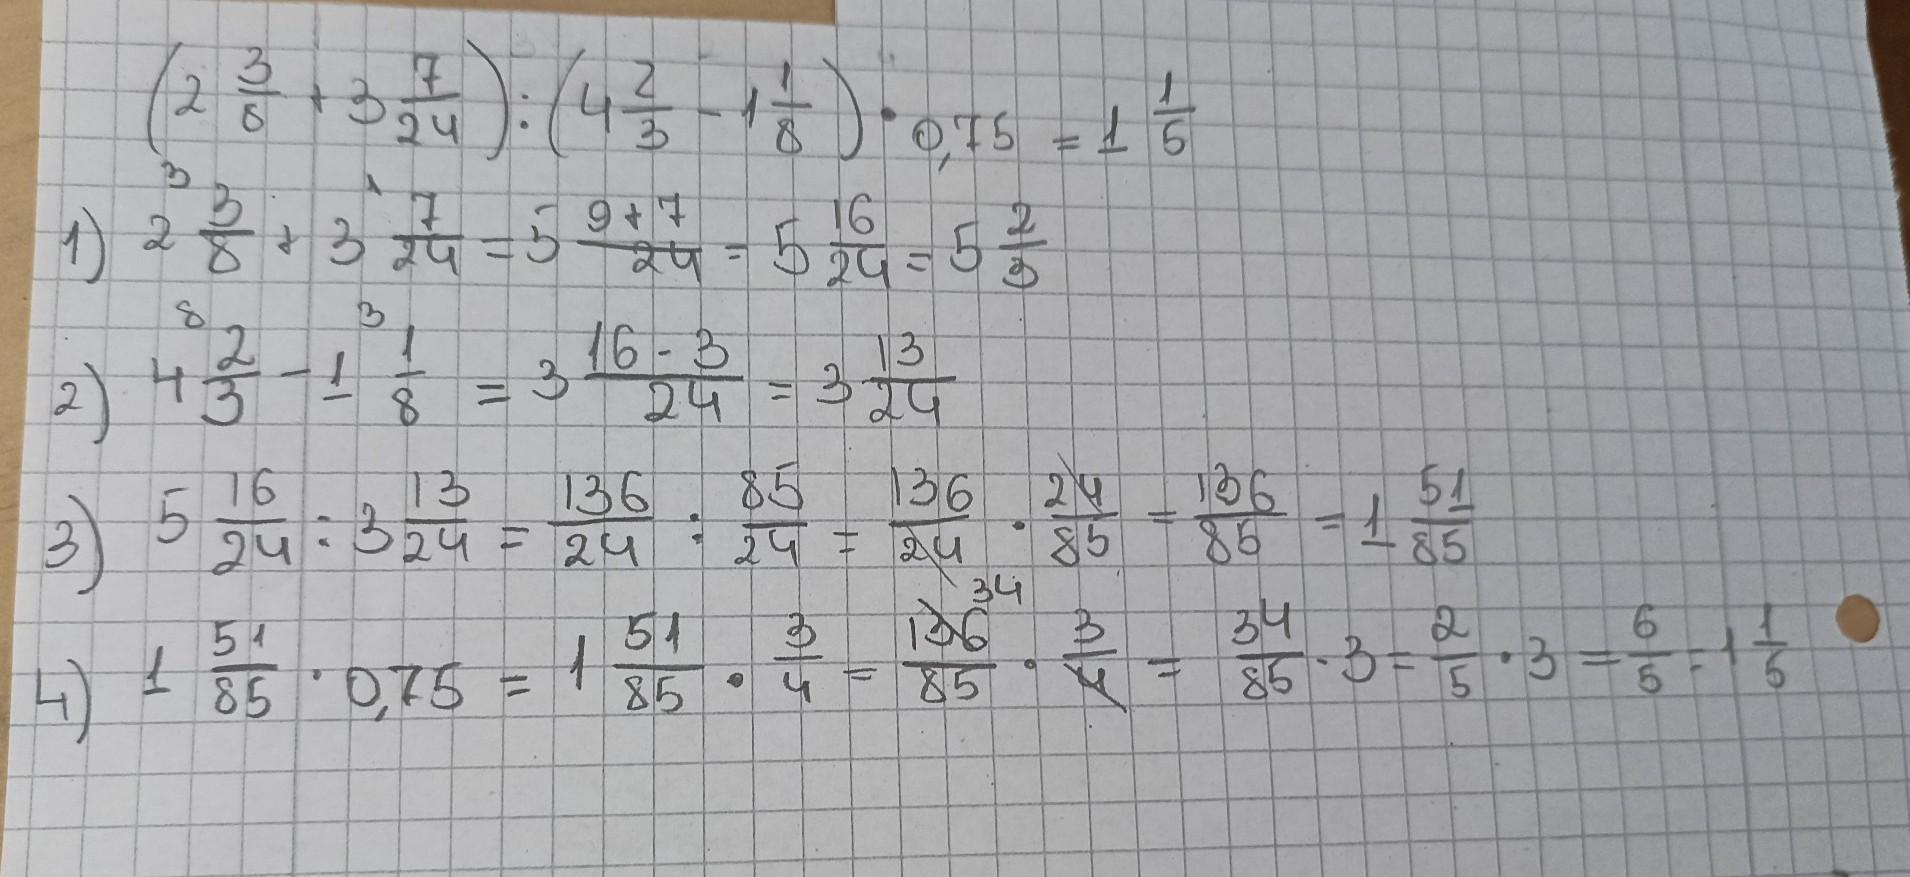 (2 3/8 + 3 7/24) : (4 2/3 - 1 1/8) · 0,75 = 1 1/5
1) 2 ³ 3/8 + 3 ¹ 7/24 = 5 (9+7)/24 = 5 16/24 = 5 2/3
2) 4 ⁸ 2/3 - 1 ³ 1/8 = 3 (16-3)/24 = 3 13/24
3) 5 16/24 : 3 13/24 = 136/24 : 85/24 = 136/24 · 24/85 = 136/85 = 1 51/85
4) 1 51/85 · 0,75 = 1 51/85 · 3/4 = 136 ³⁴/85 · 3/4 = 34/85 · 3 = 2/5 · 3 = 6/5 = 1 1/5